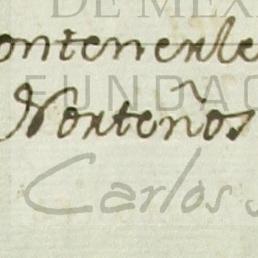 DE MÉX
ontenerle
FUNDAC
Norteños
Carlos S